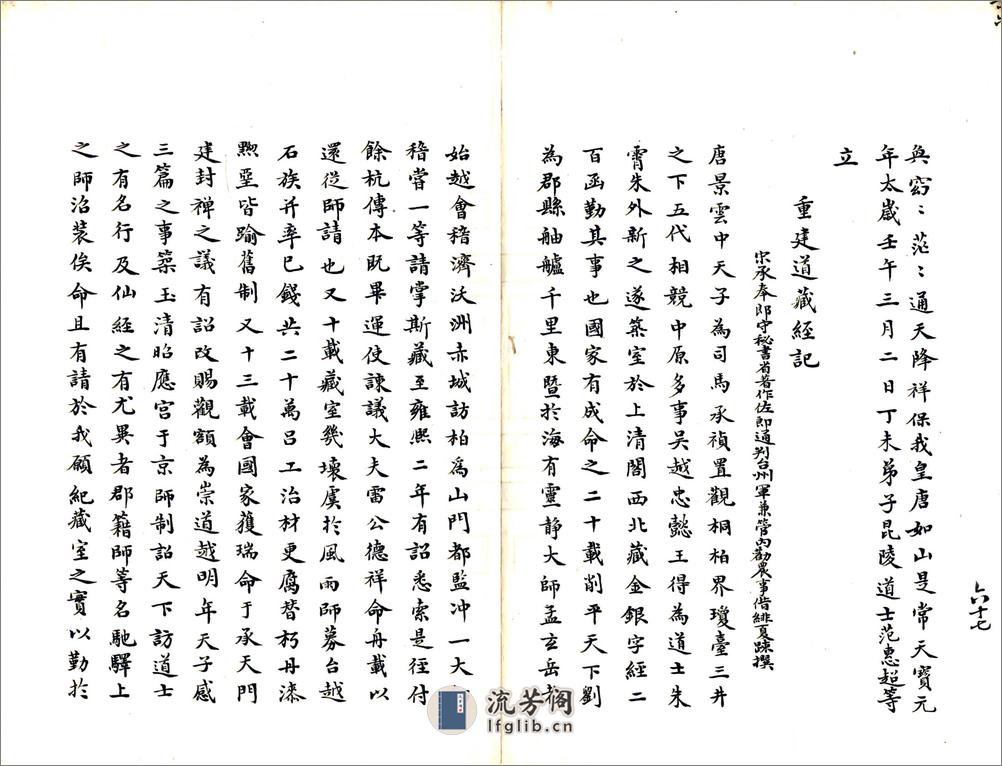 與窈〻茫〻通天降祥保我皇唐如山是常天寶元
年太歲壬午三月二日丁未弟子昆陵道士范惠超等
立
重建道藏經記
宋承奉郎守秘書省著作佐郎通判台州軍兼管內勸農事借緋夏竦撰
唐景雲中天子為司馬承禎置觀桐柏界瓊臺三井
之下五代相競中原多事吳越忠懿王得為道士朱
霄朱外新之遂築室於上清閣西北藏金銀字經二
百函勤其事也國家有成命之二十載削平天下劉
為郡縣舳艫千里東暨於海有靈静大師孟玄岳者
六十七
始越會稽濟沃洲赤城訪柏為山門都監冲一大
稽嘗一等請掌斯藏至雍熙二年有詔悉索是徑付
餘杭傳本既畢運使諫議大夫雷公德祥命舟載以
還從師請也又十載藏室幾壞虞於風雨師募台越
石族并率已錢共二十萬呂工治材更腐替朽丹漆
黝堊皆踰舊制又十三載會國家獲瑞命于承天門
建封禅之議有詔改賜觀額為崇道越明年天子感
三篇之事築玉清昭應宫于京師制詔天下訪道士
之有名行及仙經之有尤異者郡籍師等名馳驛上
之師治装俟命且有請於我願紀藏室之實以勤於
流芳阁
lfglib.cn